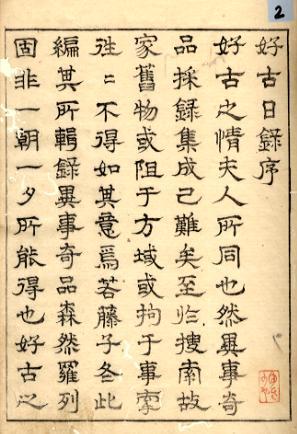 2
好古日録序
好古之情夫人所同也然異事奇
品採録集成已難矣至於搜索故
家舊物或阻于方域或拘于事
徃〻不得如其意焉若藤子冬此
編其所輯録異事奇品森然羅列
固非一朝一夕所能得也好古之